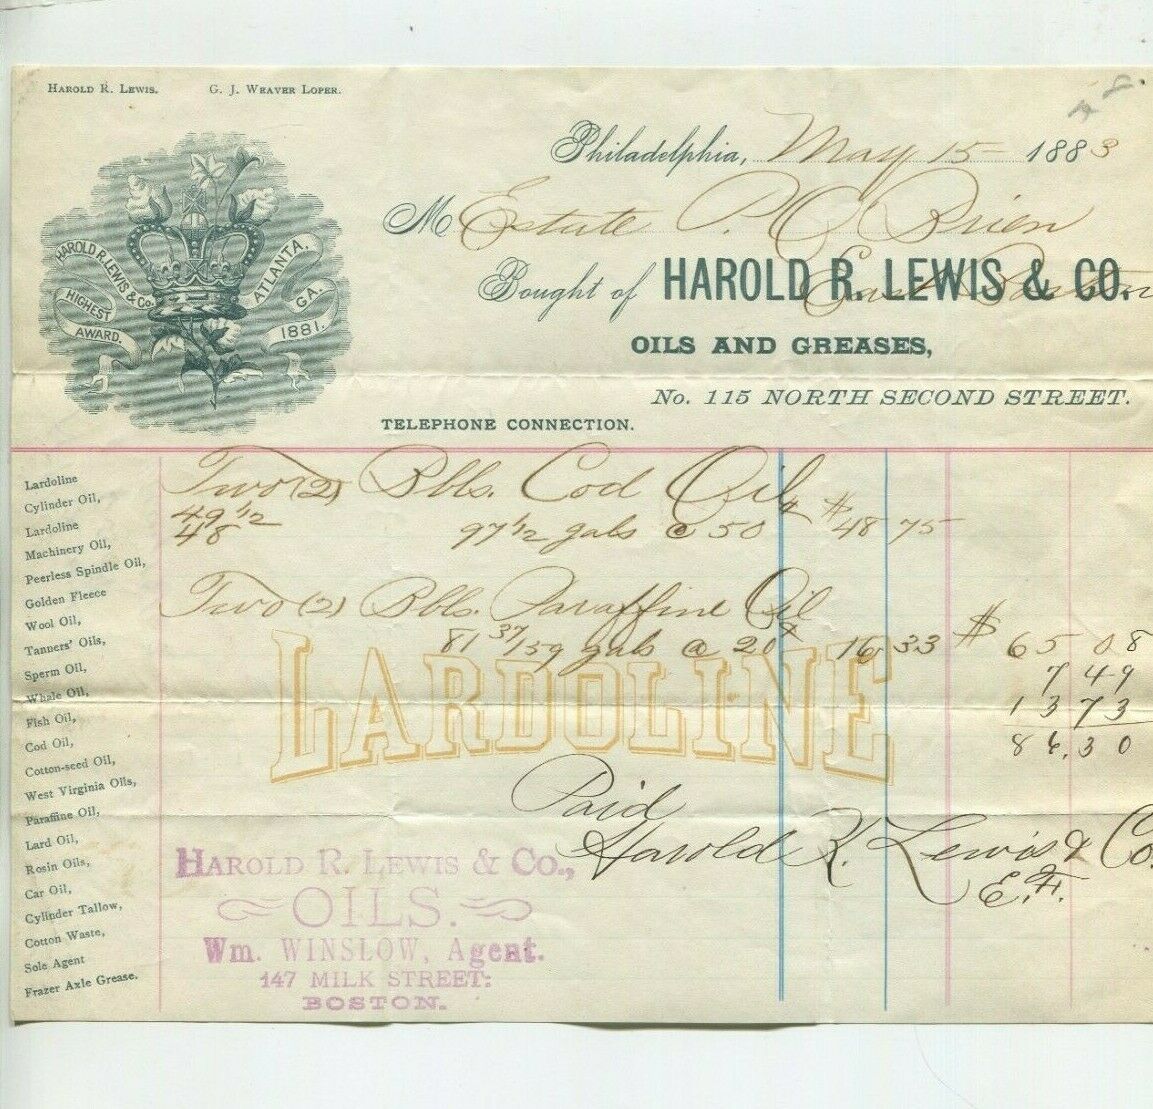 Harold R. Lewis. G. J. Weaver Loper.
Philadelphia, May 15 1883
M Estate P. O Brien
East Boston
Bought of HAROLD R. LEWIS & CO.
OILS AND GREASES,
No. 115 NORTH SECOND STREET.
TELEPHONE CONNECTION.
HAROLD R. LEWIS & CO.
HIGHEST AWARD.
ATLANTA, GA. 1881.
Two (2) Bbls. Cod Oil
49 1/2
48 97 1/2 gals @ 50 $48 75
Two (2) Bbls. Paraffine Oil
81 37/59 gals @ 20 16 33 $ 65 08
7 49
13 73
86.30
LARDOLINE
Paid
Harold R. Lewis & Co.
E.F.
Lardoline
Cylinder Oil,
Lardoline
Machinery Oil,
Peerless Spindle Oil,
Golden Fleece
Wool Oil,
Tanners' Oils,
Sperm Oil,
Whale Oil,
Fish Oil,
Cod Oil,
Cotton-seed Oil,
West Virginia Oils,
Paraffine Oil,
Lard Oil,
Rosin Oils,
Car Oil,
Cylinder Tallow,
Cotton Waste,
Sole Agent
Frazer Axle Grease.
HAROLD R. LEWIS & CO.,
OILS.
Wm. WINSLOW, Agent.
147 MILK STREET:
BOSTON.